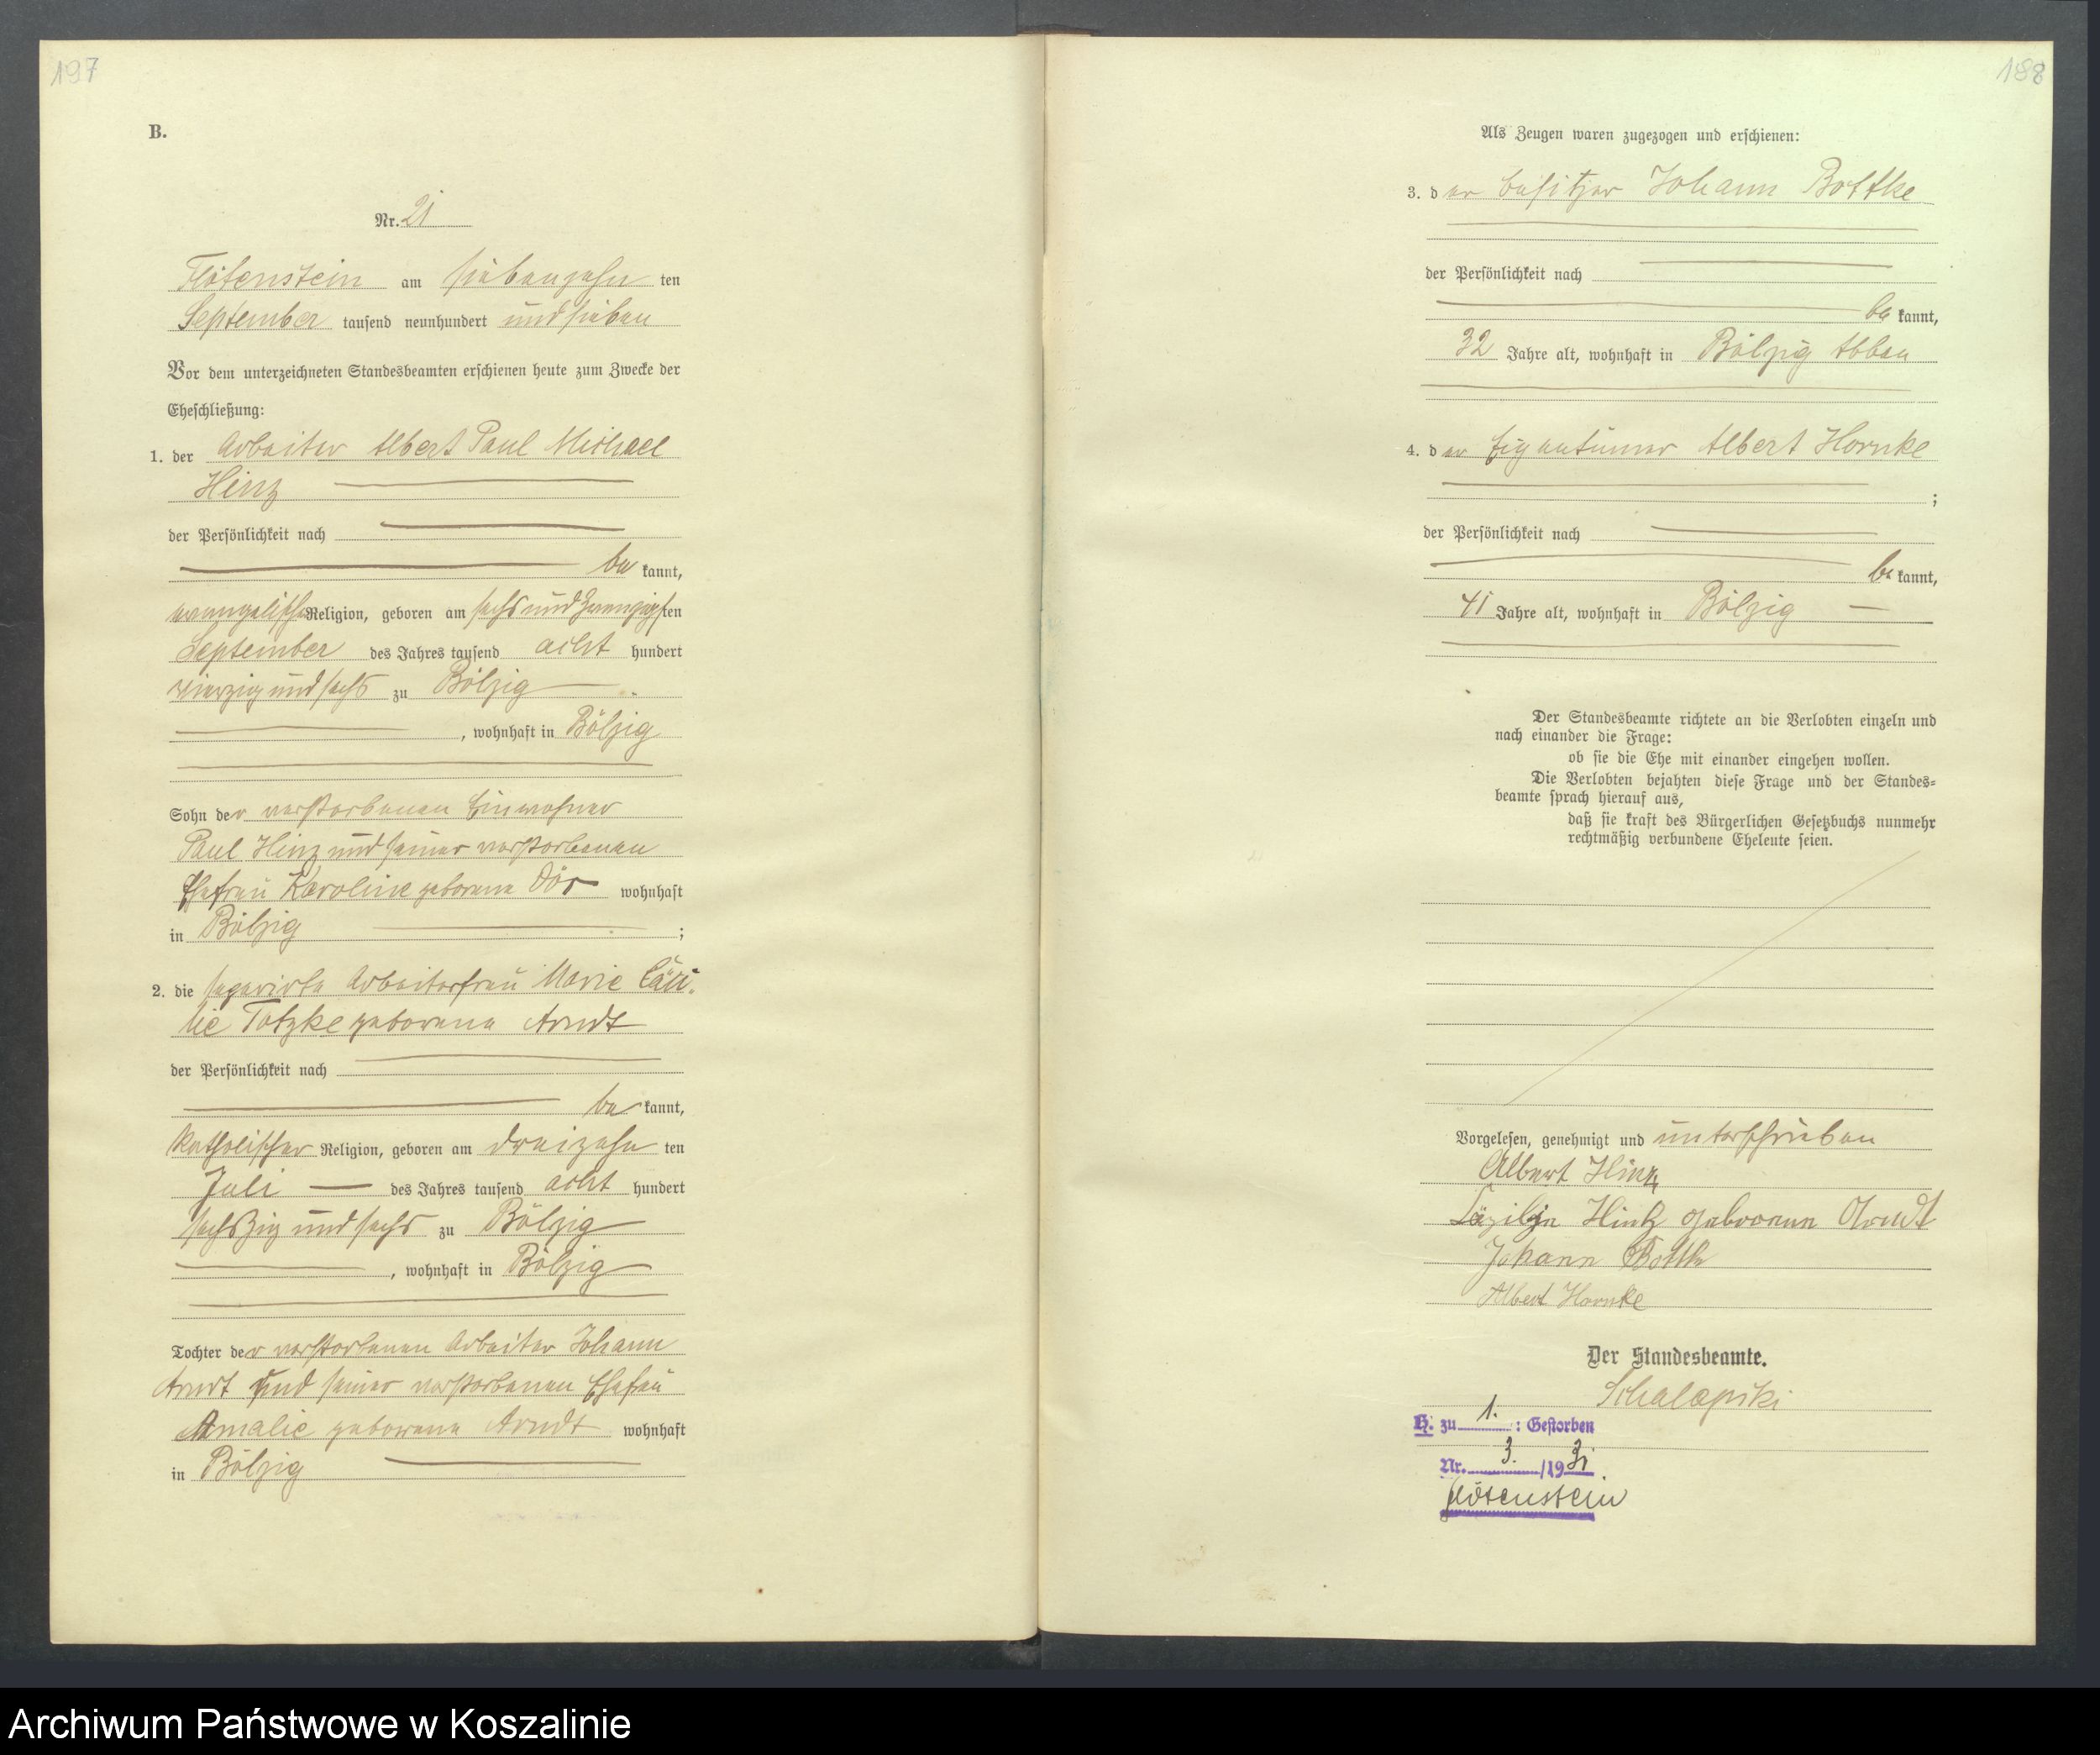 197
B.
Nr. 21
Flötenstein am siebenzehn ten
September tausend neunhundert und sieben
Vor dem unterzeichneten Standesbeamten erschienen heute zum Zwecke der
Eheschließung:
1. der Arbeiter Albert Paul Michael
Hinz
der Persönlichkeit nach
be kannt,
evangelischer Religion, geboren am sechs und zwanzigsten
September des Jahres tausend acht hundert
vierzig und sechs zu Bölzig
, wohnhaft in Bölzig
Sohn der verstorbenen Einwohner
Paul Hinz und seiner verstorbenen
Ehefrau Karoline geborene wohnhaft
in Bölzig ;
2. die separirte Arbeiterfrau Marie Cäci-
lie Tatzke geborene Arndt
der Persönlichkeit nach
be kannt,
katholischer Religion, geboren am dreizehn ten
Juli des Jahres tausend acht hundert
sechszig und sechs zu Bölzig
, wohnhaft in Bölzig
Tochter der verstorbenen Arbeiter Johann
Arndt und seiner verstorbenen Ehefrau
Amalie geborene Arndt wohnhaft
in Bölzig
198
Als Zeugen waren zugezogen und erschienen:
3. der Besitzer Johann Bottke
der Persönlichkeit nach
be kannt,
32 Jahre alt, wohnhaft in Bölzig Abbau
4. der Eigentümer Albert Hornke
;
der Persönlichkeit nach
be kannt,
41 Jahre alt, wohnhaft in Bölzig
Der Standesbeamte richtete an die Verlobten einzeln und
nach einander die Frage:
ob sie die Ehe mit einander eingehen wollen.
Die Verlobten bejahten diese Frage und der Standes=
beamte sprach hierauf aus,
daß sie kraft des Bürgerlichen Gesetzbuchs nunmehr
rechtmäßig verbundene Eheleute seien.
Vorgelesen, genehmigt und unterschrieben
Albert Hinz
Hintz geborene Arndt
Johann Bottke
Albert Hornke
Der Standesbeamte.
H. zu 1. : Gestorben
Nr. 3. /1931.
Flötenstein
Archiwum Państwowe w Koszalinie